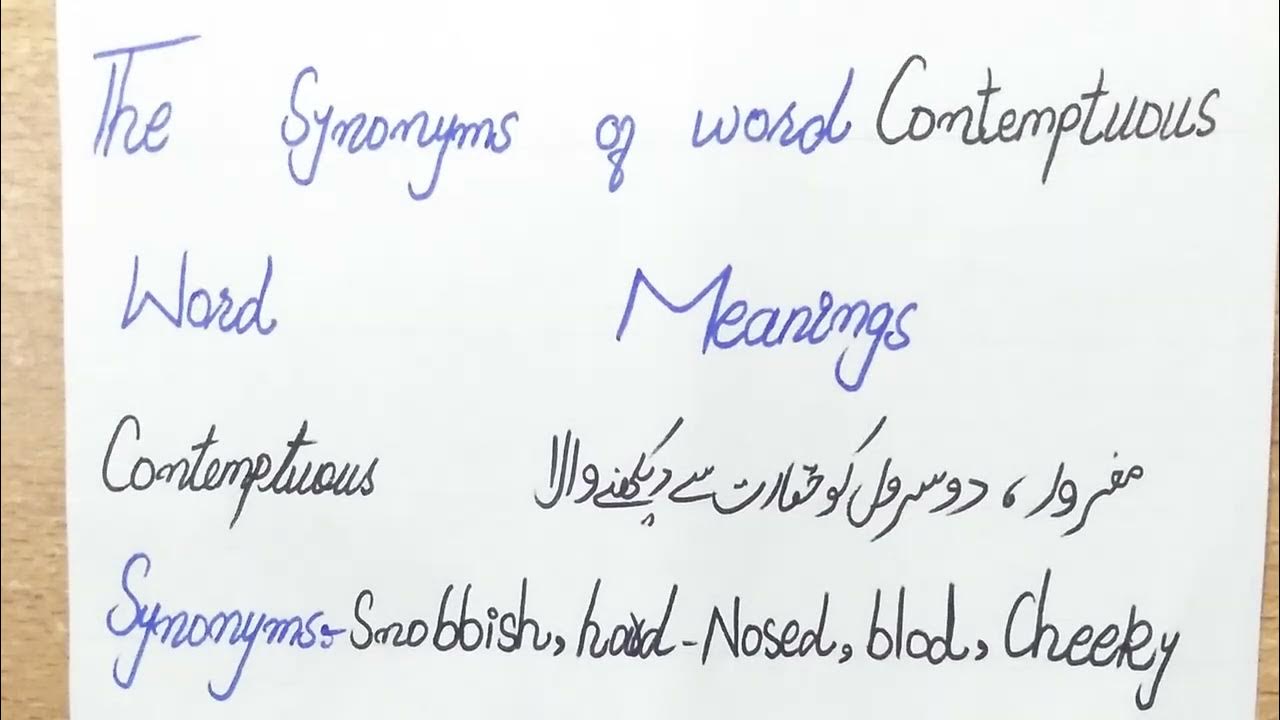 The Synonyms of word Contemptuous
Word Meanings
Contemptuous مغرور ، دوسروں کو حقارت سے دیکھنے والا
Synonyms:- Snobbish, hard-Nosed, blod, Cheeky